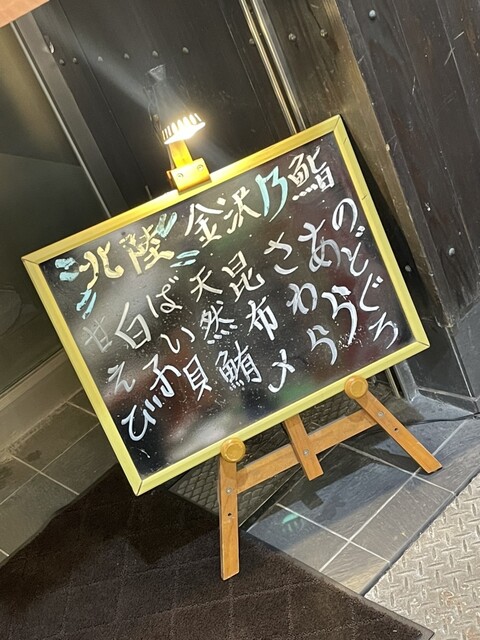 北陸 金沢乃鮨
のどぐろ
あら
さわら
昆布〆
天然鮪
ばい貝
白子
甘えび